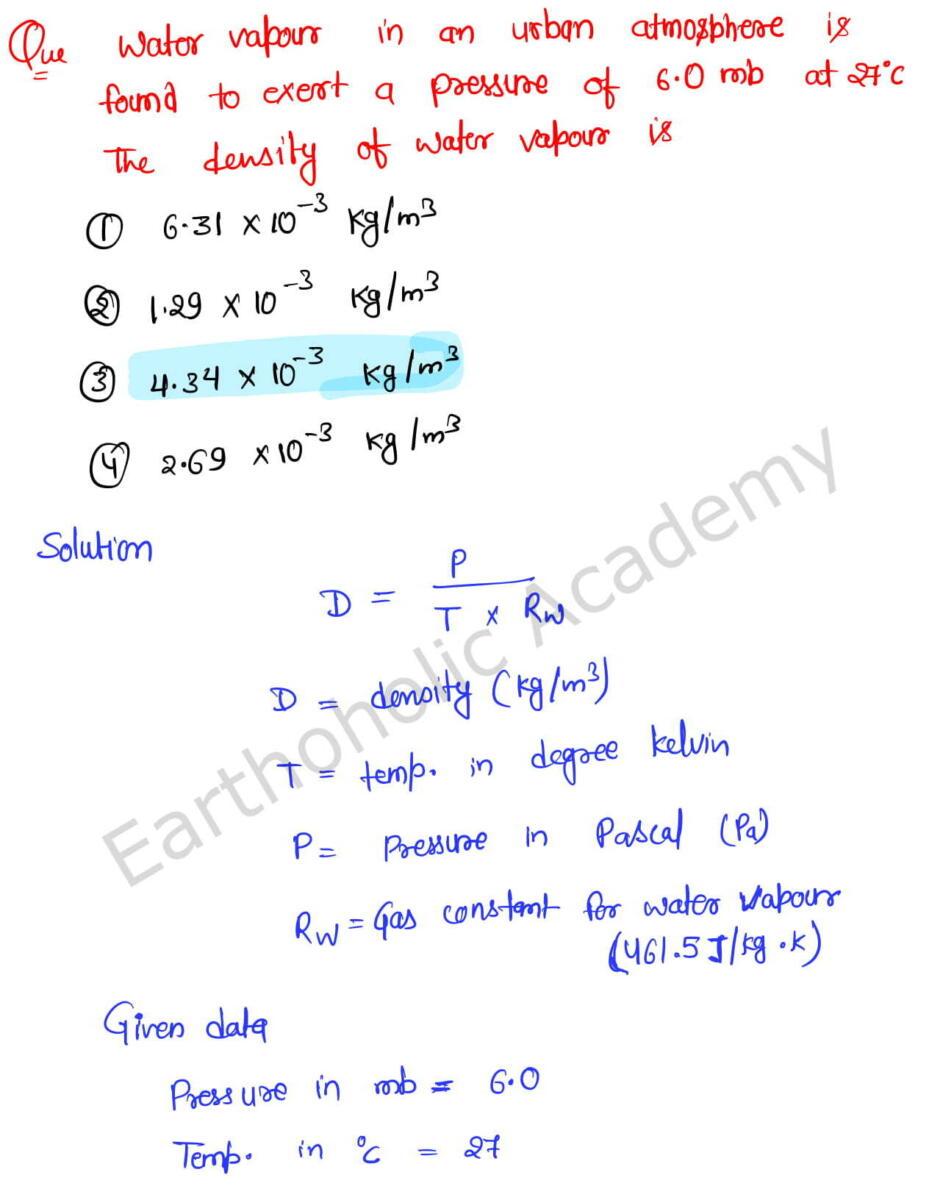 Que Water vapour in an urban atmosphere is
found to exert a pressure of 6.0 mb at 27°C
The density of water vapour is
① 6.31 × 10⁻³ kg/m³
② 1.29 × 10⁻³ kg/m³
③ 4.34 × 10⁻³ kg/m³
④ 2.69 × 10⁻³ kg/m³
Solution
D = P / T × Rw
D = density (kg/m³)
T = temp. in degree kelvin
P = Pressure in Pascal (Pa)
Rw = Gas constant for water vapour
(461.5 J/kg.k)
Given data
Pressure in mb = 6.0
Temp. in °C = 27
Earthoholic Academy